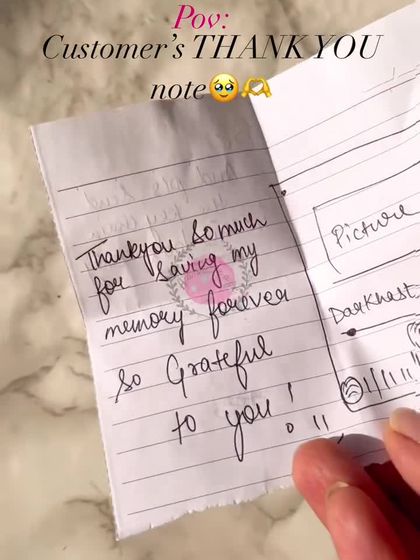 Pov:
Customer's THANK YOU
note🥹🫶
Thankyou so much
for saving my
memory forever
so Grateful
to you!
Picture
Darknest